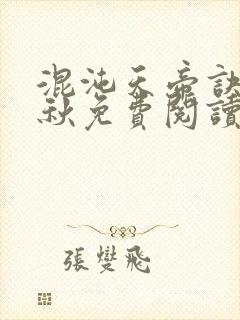 混沌天帝訣
秋免費閱讀
張燮飛